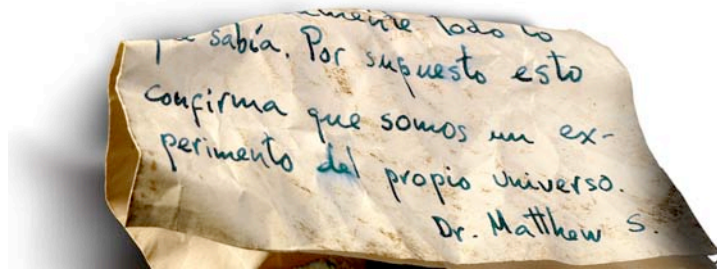 todo lo
sabía. Por supuesto esto
confirma que somos un ex-
perimento del propio universo.
Dr. Matthew S.